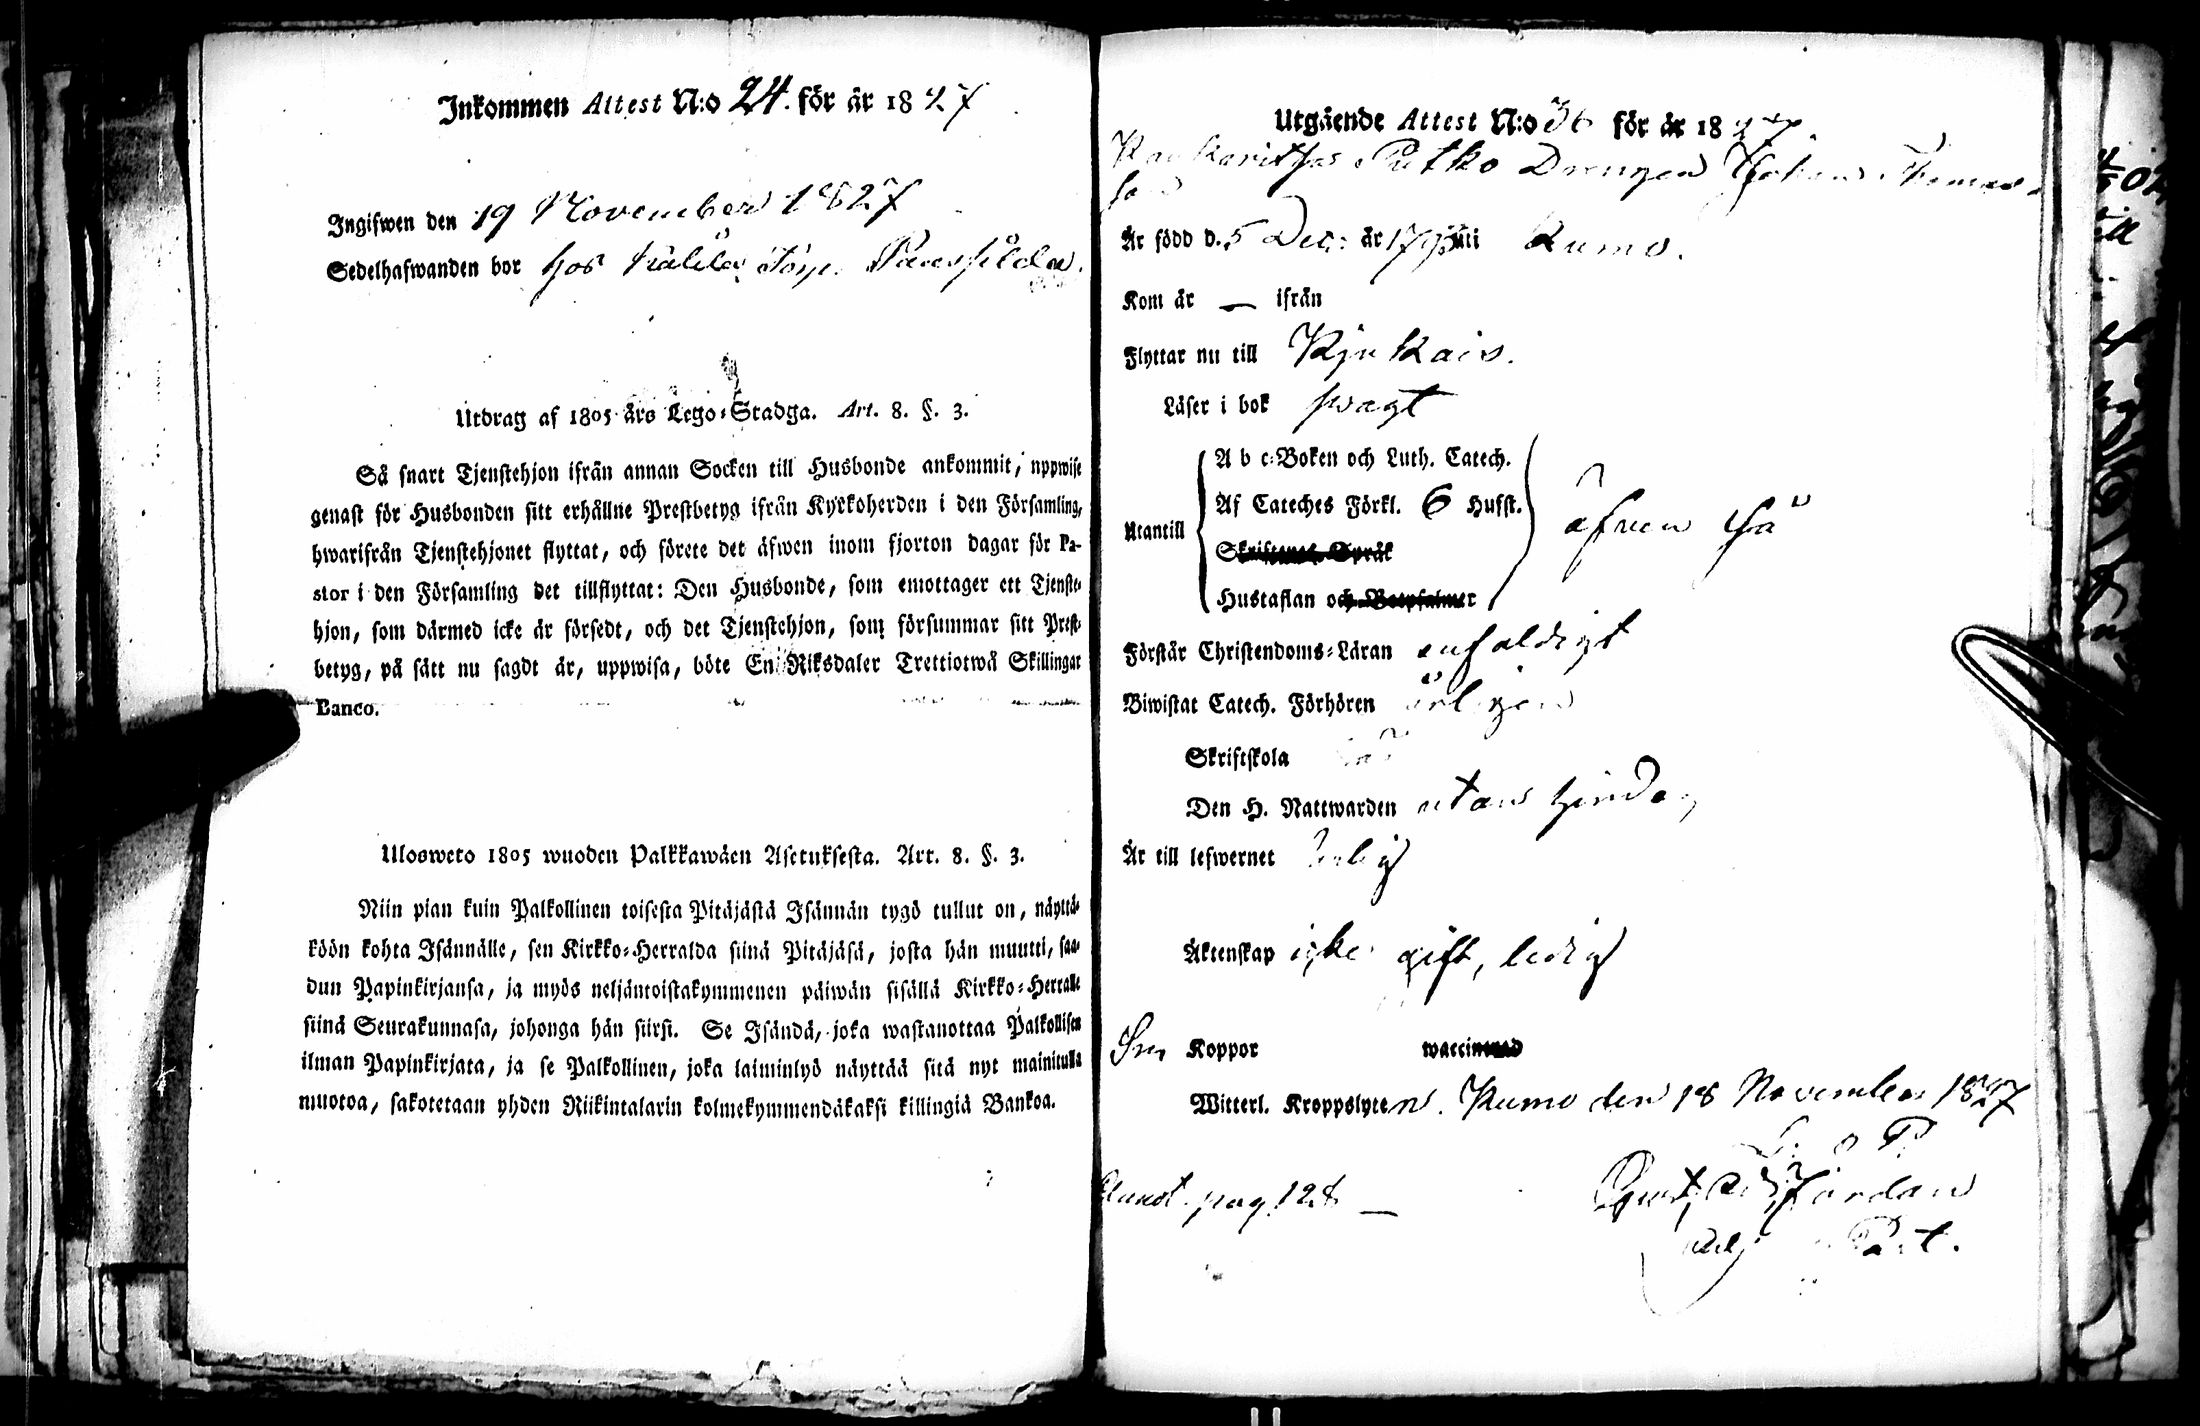 Inkommen Attest N:o 24. för år 1827
Ingifwen den 19 November 1827
Sedelhafwanden bor hos
Utdrag af 1805 års Lego-Stadga. Art. 8. §. 3.
Så snart Tjenstehjon ifrån annan Socken till Husbonde ankommit, uppwise
genast för Husbonden sitt erhållne Prestbetyg ifrån Kyrkoherden i den Församling,
hwarifrån Tjenstehjonet flyttat, och förete det äfwen inom fjorton dagar för Pa-
stor i den Församling det tillflyttat: Den Husbonde, som emottager ett Tjenste-
hjon, som därmed icke är försedt, och det Tjenstehjon, som försummar sitt Prest-
betyg, på sätt nu sagdt är, uppwisa, böte En Riksdaler Trettiotwå Skillingar
Banco.
Ulosweto 1805 wuoden Palkkawäen Asetuksesta. Art. 8. §. 3.
Niin pian kuin Palkollinen toisesta Pitäjästä Isännän tygö tullut on, näyttä-
köön kohta Isännälle, sen Kirkko-Herralda siinä Pitäjäsä, josta hän muutti, saa-
dun Papinkirjansa, ja myös neljäntoistakymmenen päiwän sisällä Kirkko-Herralle
siinä Seurakunnasa, johonga hän siirsi. Se Isändä, joka wastanottaa Palkollisen
ilman Papinkirjata, ja se Palkollinen, joka laiminlyö näyttää sitä nyt mainitulla
muotoa, sakotetaan yhden Riikintalarin kolmekymmendäkaksi killingiä Bankoa.
Utgående Attest N:o 36 för år 1827
Drengen Johan Thomas-
son
Är född d. 5 Dec: år 1795 uti Kumo.
Kom år — ifrån
Flyttar nu till Kjukais.
Läser i bok swagt
Utantill
A b c-Boken och Luth. Catech.
Af Cateches Förkl. 6 Hufst.
Skriftenes Språk
Hustaflan och Botpsalmer
äfven så
Förstår Christendoms-Läran enfaldigt
Biwistat Catech. Förhören årligen
Skriftskola
Den H. Nattwarden utan hinder
Är till lefwernet ärlig
Äktenskap icke gift, ledig
Koppor waccinerad
Witterl. Kroppslyten. Kumo den 18 November 1827
pag. 128 —